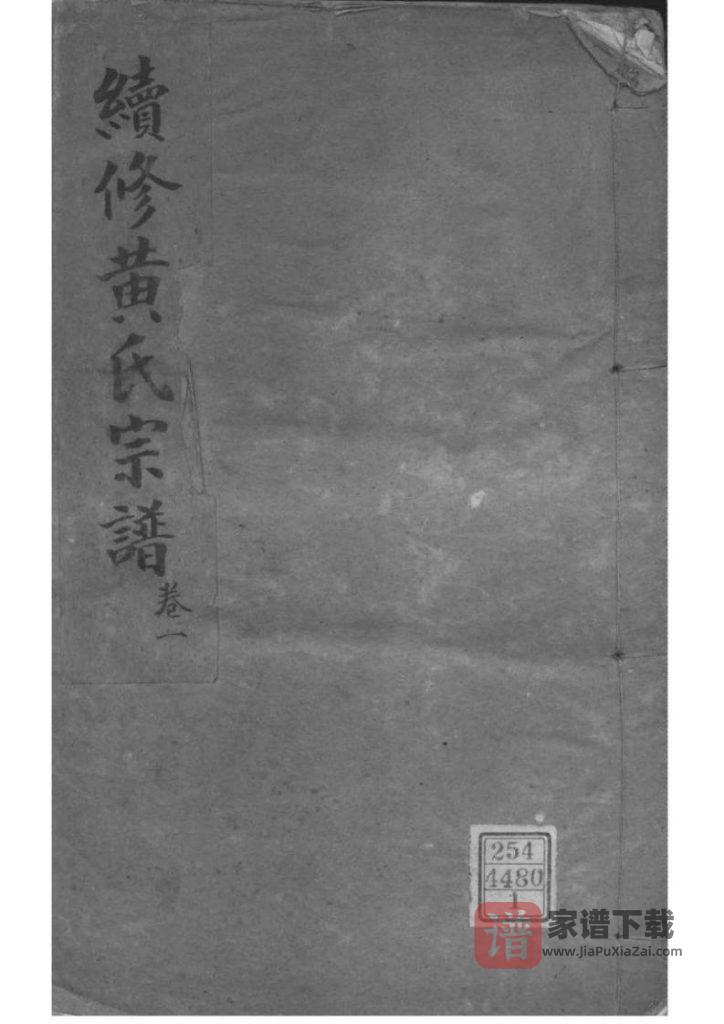 續修黄氏宗譜
卷一
254
4480
1
谱
家谱下载
www.JiaPuXiaZai.com